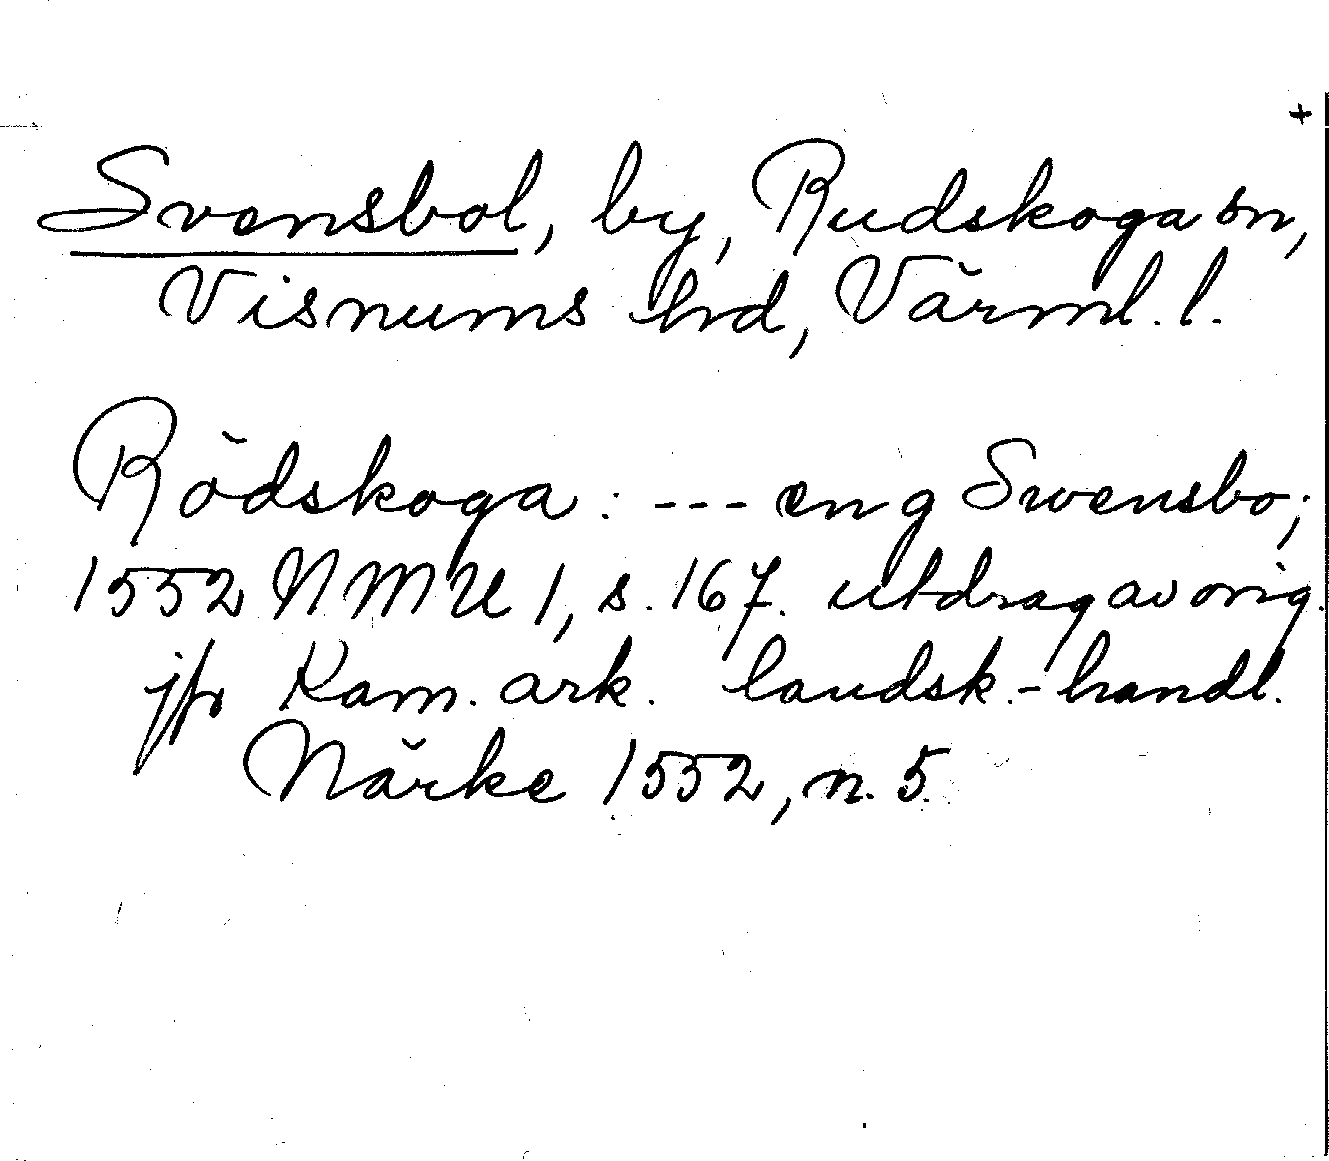 +
Svensbol, by, Rudskoga sn,
Visnums hrd, Värml. l.
Rödskoga : --- en g Swensbo;
1552 NMU 1, s. 167. utdrag av orig.
jfr Kam. ark. landsk.-handl.
Närke 1552, n. 5